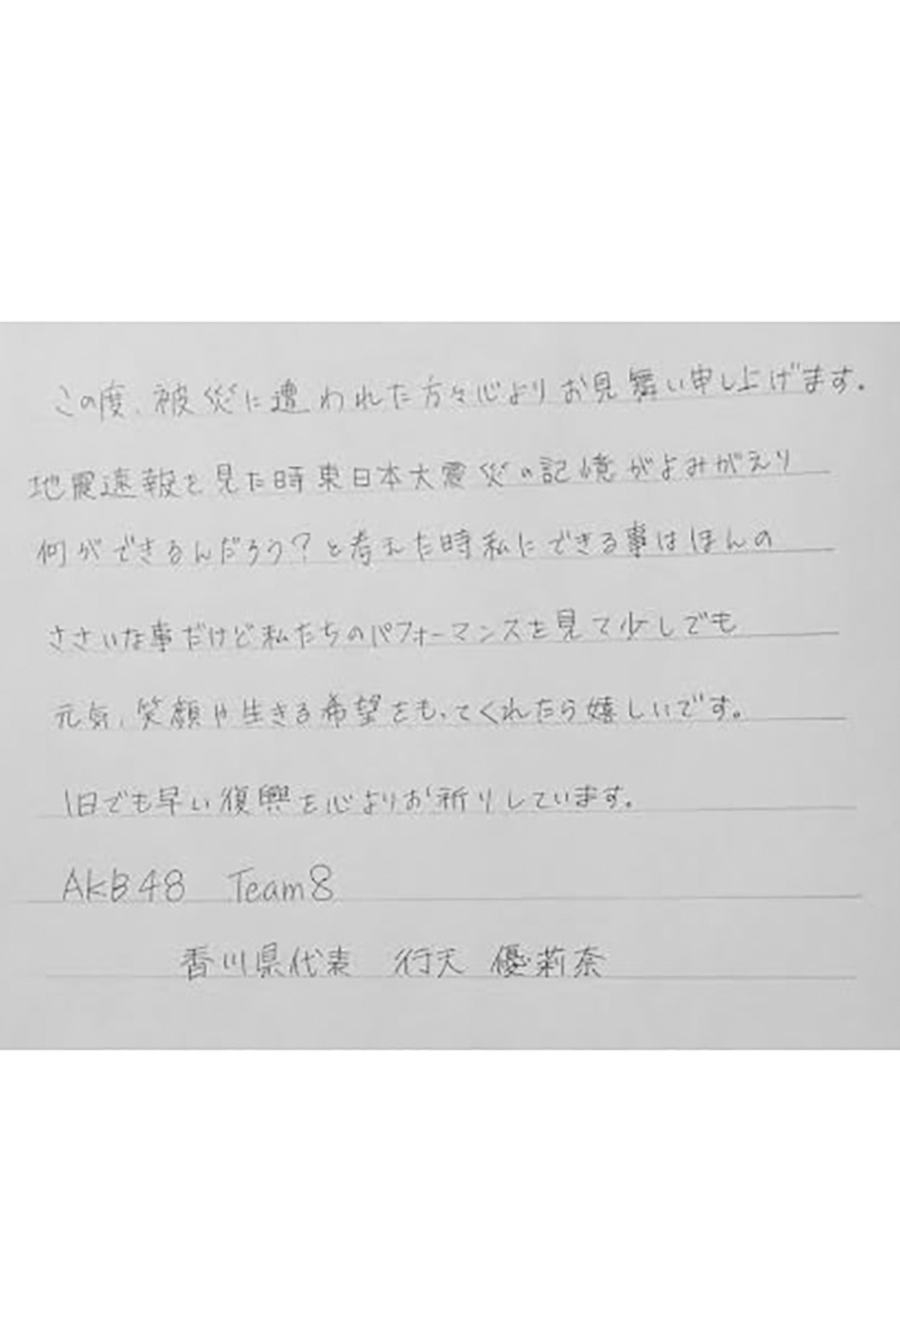 この度、被災に遭われた方々心よりお見舞い申し上げます。
地震速報を見た時東日本大震災の記憶がよみがえり
何ができるんだろう?と考えた時私にできる事はほんの
ささいな事だけど私たちのパフォーマンスを見て少しでも
元気、笑顔や生きる希望をもってくれたら嬉しいです。
1日でも早い復興を心よりお祈りしています。
AKB48 Team8
香川県代表 行天 優莉奈